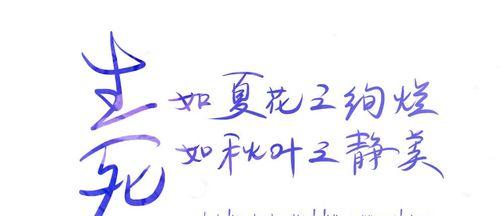 生 如夏花之绚烂
死 如秋叶之静美